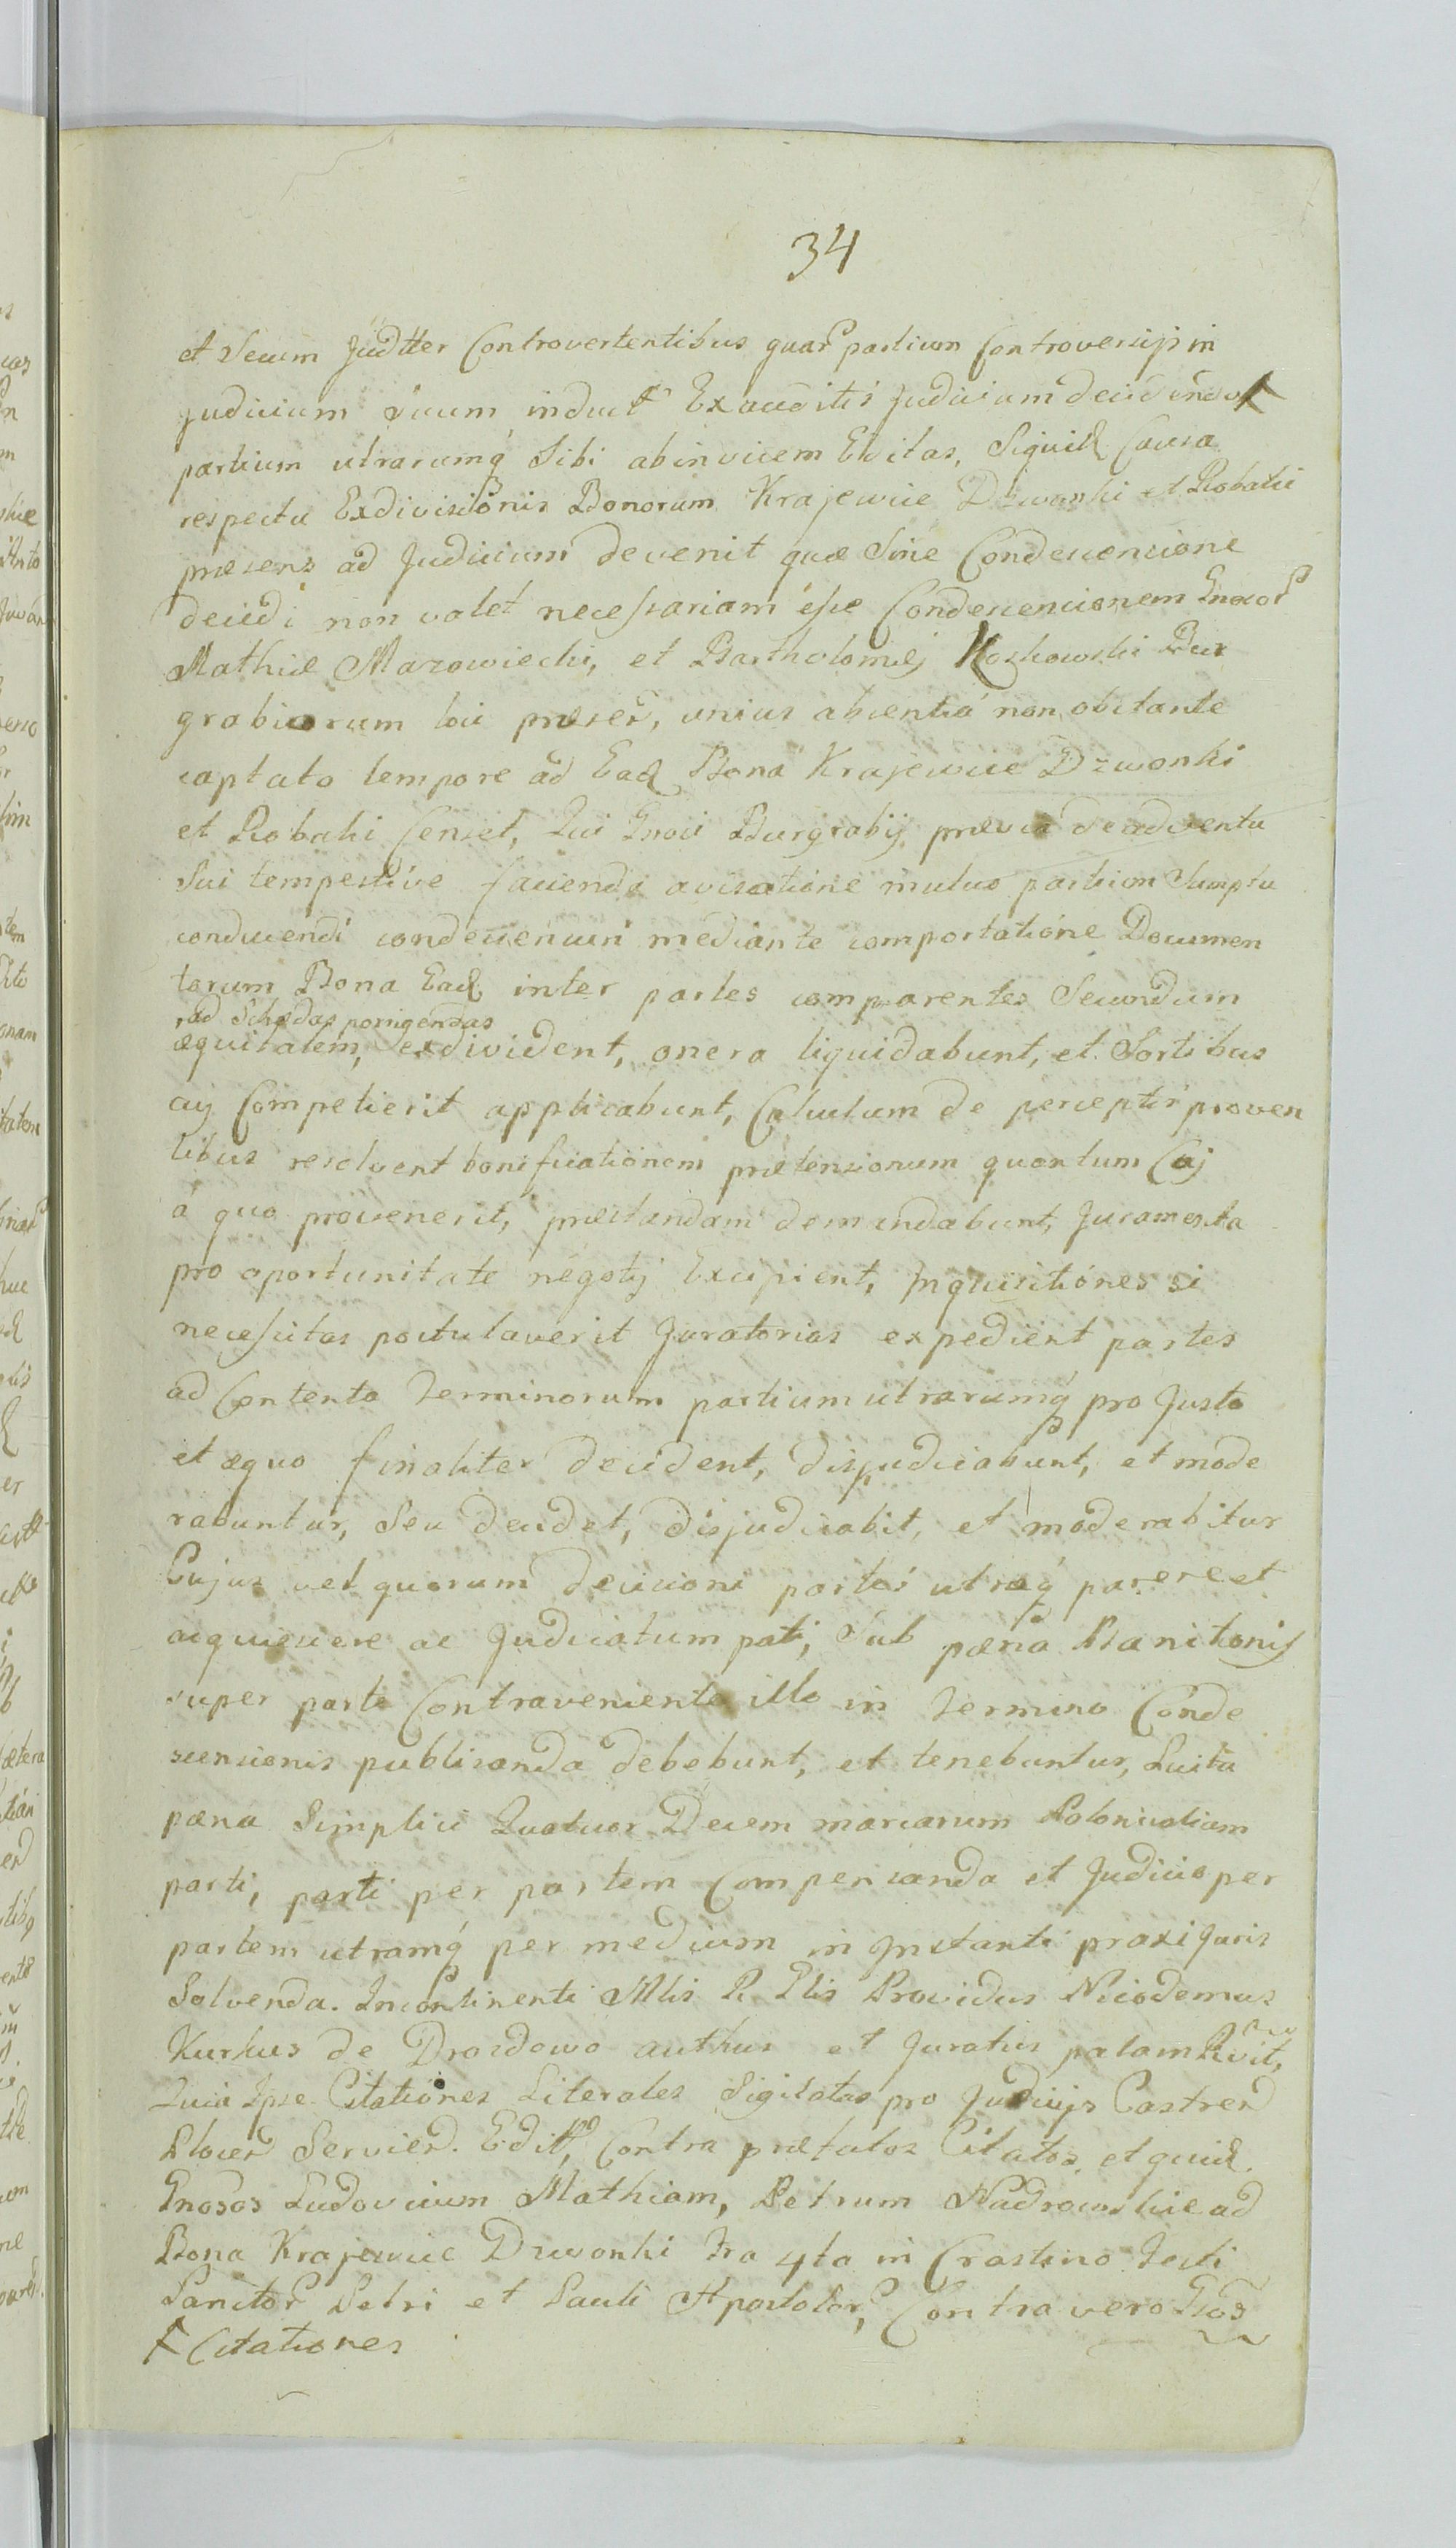 34
et Secum Juditter Controvertentibus quar partium Controversijs in
judicium suum induct Exauditis Judicium decidendo
partium utrarumq Sibi abinvicem Editas, Siquid Causa
respectu Exdivisionis Bonorum Krajewice Dzwonki et Robaki
praesens ad Judicium devenit quae Sine Condescensione
decidi non valet necessariam esse Condescensionem Gnosor
Mathiae Mazowiecki, et Bartholomaej Koskowski Bur
grabiorum loci praesen, unius absentia non obstante
captato tempore ad Ead Bona Krajewice Dzwonki
et Robaki Censet, Qui Gnosi Burgrabij praevia de adventu
Sui tempestive facienda avisatione mutuo partium Sumptu
conducendi condescensuri mediante comportatione Documen
torum Bona Ead inter partes comparentes Secundum
ad Schedas porrigendas
aequitatem, exdivident, onera liquidabunt, et Sortibus
cuj Competierit applicabunt, Calculum de perceptis proven
tibus resolvent bonificationem praetensionum quantum Cuj
a quo provenerit, praestandam demandabunt, Juramenta
pro oportunitate negotij Excipient, Inquisitiones si
necessitas postulaverit Juratorias expedient partes
ad Contenta Terminorum partium utrarumq pro Justo
et aequo finaliter decident, disjudicabunt, et mode
rabuntur, Seu decidet, disjudicabit, et moderabitur
Cujus vel quorum decisioni partes utraeq parere et
acquiescere ac Judicatum pati, Sub paena Banitionis
super parte Contraveniente illo in Termino Conde
scensionis publicanda debebunt, et tenebuntur, Luitu
paena Simplici Quatuor Decem marcarum Polonicalium
parti, parti per partem Compensanda et Judicio per
partem utramq per medium in Instanti praxi Juris
Solvenda. Incontinenti Mlis R Plis Providus Nicodemus
Kurkus de Drozdowo authus et Juratus palam Rvit,
Quia Ipse Citationes Literales Sigilatas pro Judicijs Castren
Plocen Servien. Editt, Contra praetatos Citatos, et quid.
Gnosos Ludovicum Mathiam, Petrum Nadrowskie ad
Bona Krajewice Dzwonki Fra 4ta in Crastino Festi
Sanctor Petri et Pauli Apostolor, Contra vero Gnos
Citationes